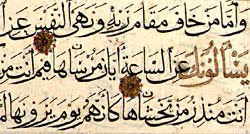 وَأَمَّا مَنْ خَافَ مَقَامَ رَبِّهِ وَنَهَى النَّفْسَ عَنِ
يَسْأَلُونَكَ عَنِ السَّاعَةِ أَيَّانَ مُرْسَاهَا فِيمَ أَنْتَ مِنْ
أَنْتَ مُنْذِرُ مَنْ يَخْشَاهَا كَأَنَّهُمْ يَوْمَ يَرَوْنَهَا لَمْ